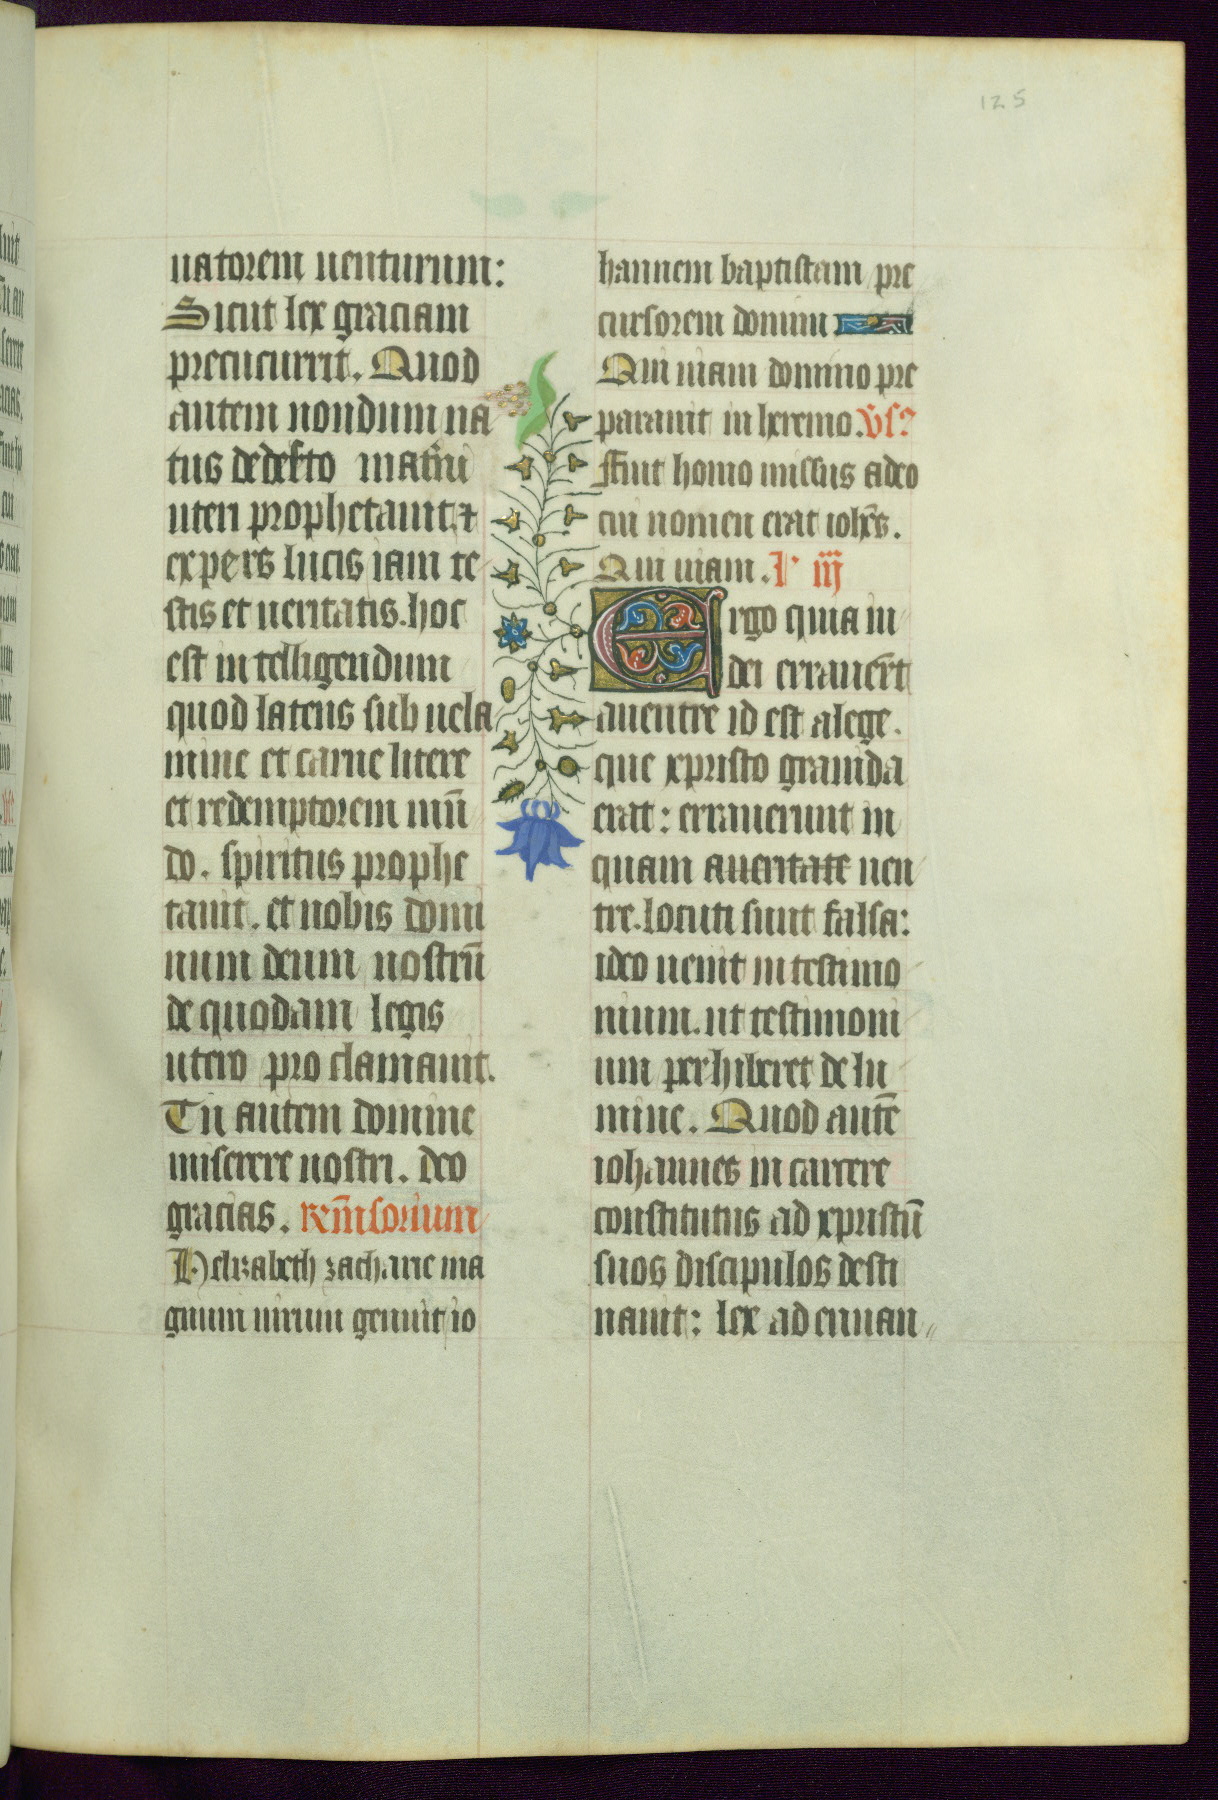 125
uatorem uenturum:
Sicut lex graciam
precucurrit. Quod
autem nondum na
tus de defcto matrni
uteri prophetauit. ⁊
expers lucis iam te
stis et ueritatis. hoc
est in telligendum
quod latens sub uela
mine et carne litere
et redemptorem mũ
do. spiritus prophe
tauit. et nobis domi
num deum nostrũ
de quodam legis
utero pro clamauit.
Tu autem domine
miserere nostri. deo
gracias. rem̃sorium
Helizabeth zacharie ma
gnum uirum genuit io
hannem baptistam pre
cursorem domini
Qui uiam domino pre
parauit in heremo. Vs̃
Fuit homo missus a deo
cui nomen erat ioh̃es.
Qui uiam. l' iij
Ergo quia iu
dei errauer̃t
a uentre id est a lege.
que xpristo grauida
erat: errauerunt in
quam a ueritate uen
tre. locuti sunt falsa:
ideo uenit in testimo
nium. ut testimoni
um perhiberet de lu
mine. Quod autẽ
iohannes in carcere
constitutus ad xpristũ
suos discipulos desti
nauit: lex ad euuan